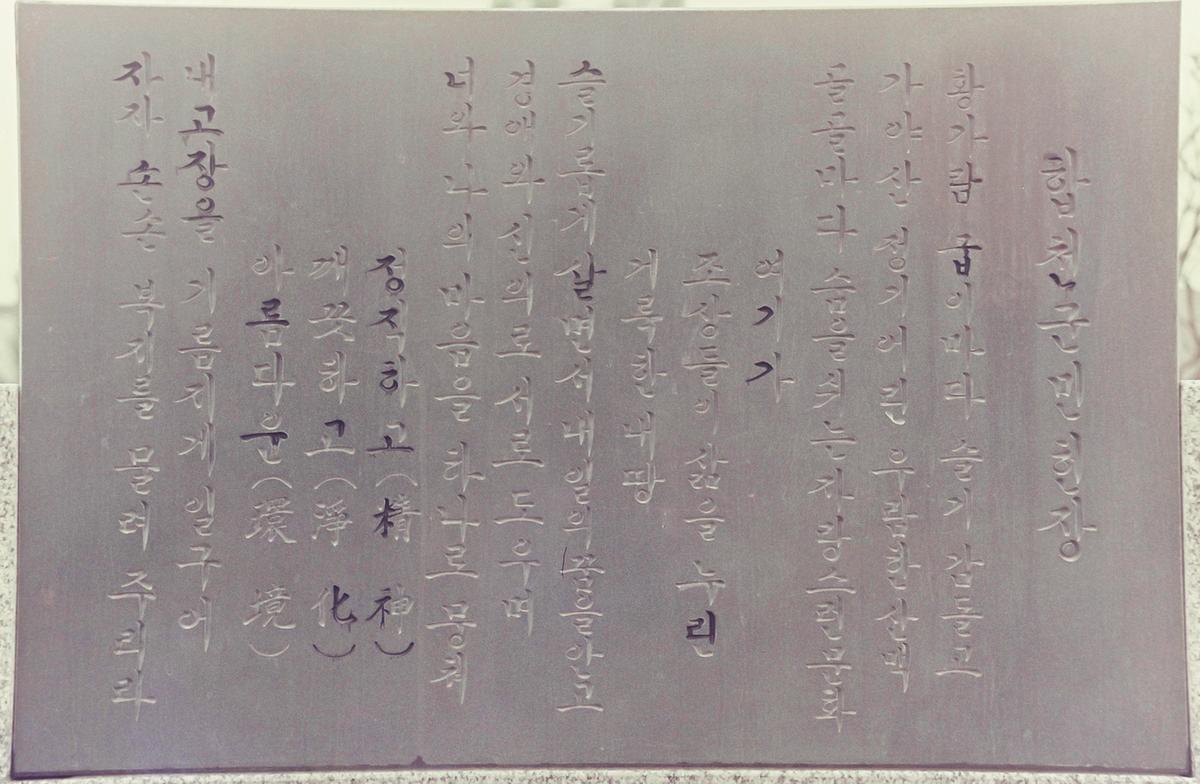 합천군민헌장
황가람 굽이마다 슬기 감돌고
가야산 정기어린 우람한 산맥
골골마다 숨을쉬는 자랑스런문화
여기가
조상들이 삶을 누린
거룩한 내땅
슬기롭게 살면서 내일의 꿈을안고
경애와 신의로 서로 도우며
너와 나의 마음을 하나로 뭉쳐
정직하고(精 神)
깨끗하고(淨 化)
아름다운(環 境)
내고장을 기름지게 일구어
자자 손손 복지를 물려 주리라